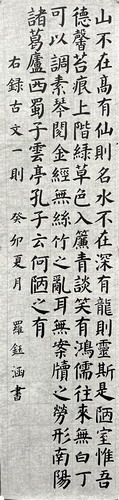 山不在高有仙則名水不在深有龍則靈斯是陋室惟吾
德馨苔痕上階綠草色入簾青談笑有鴻儒往來無白丁
可以調素琴閱金經無絲竹之亂耳無案牘之勞形南陽
諸葛廬西蜀子雲亭孔子云何陋之有
右錄古文一則 癸卯夏月 羅鈺涵書